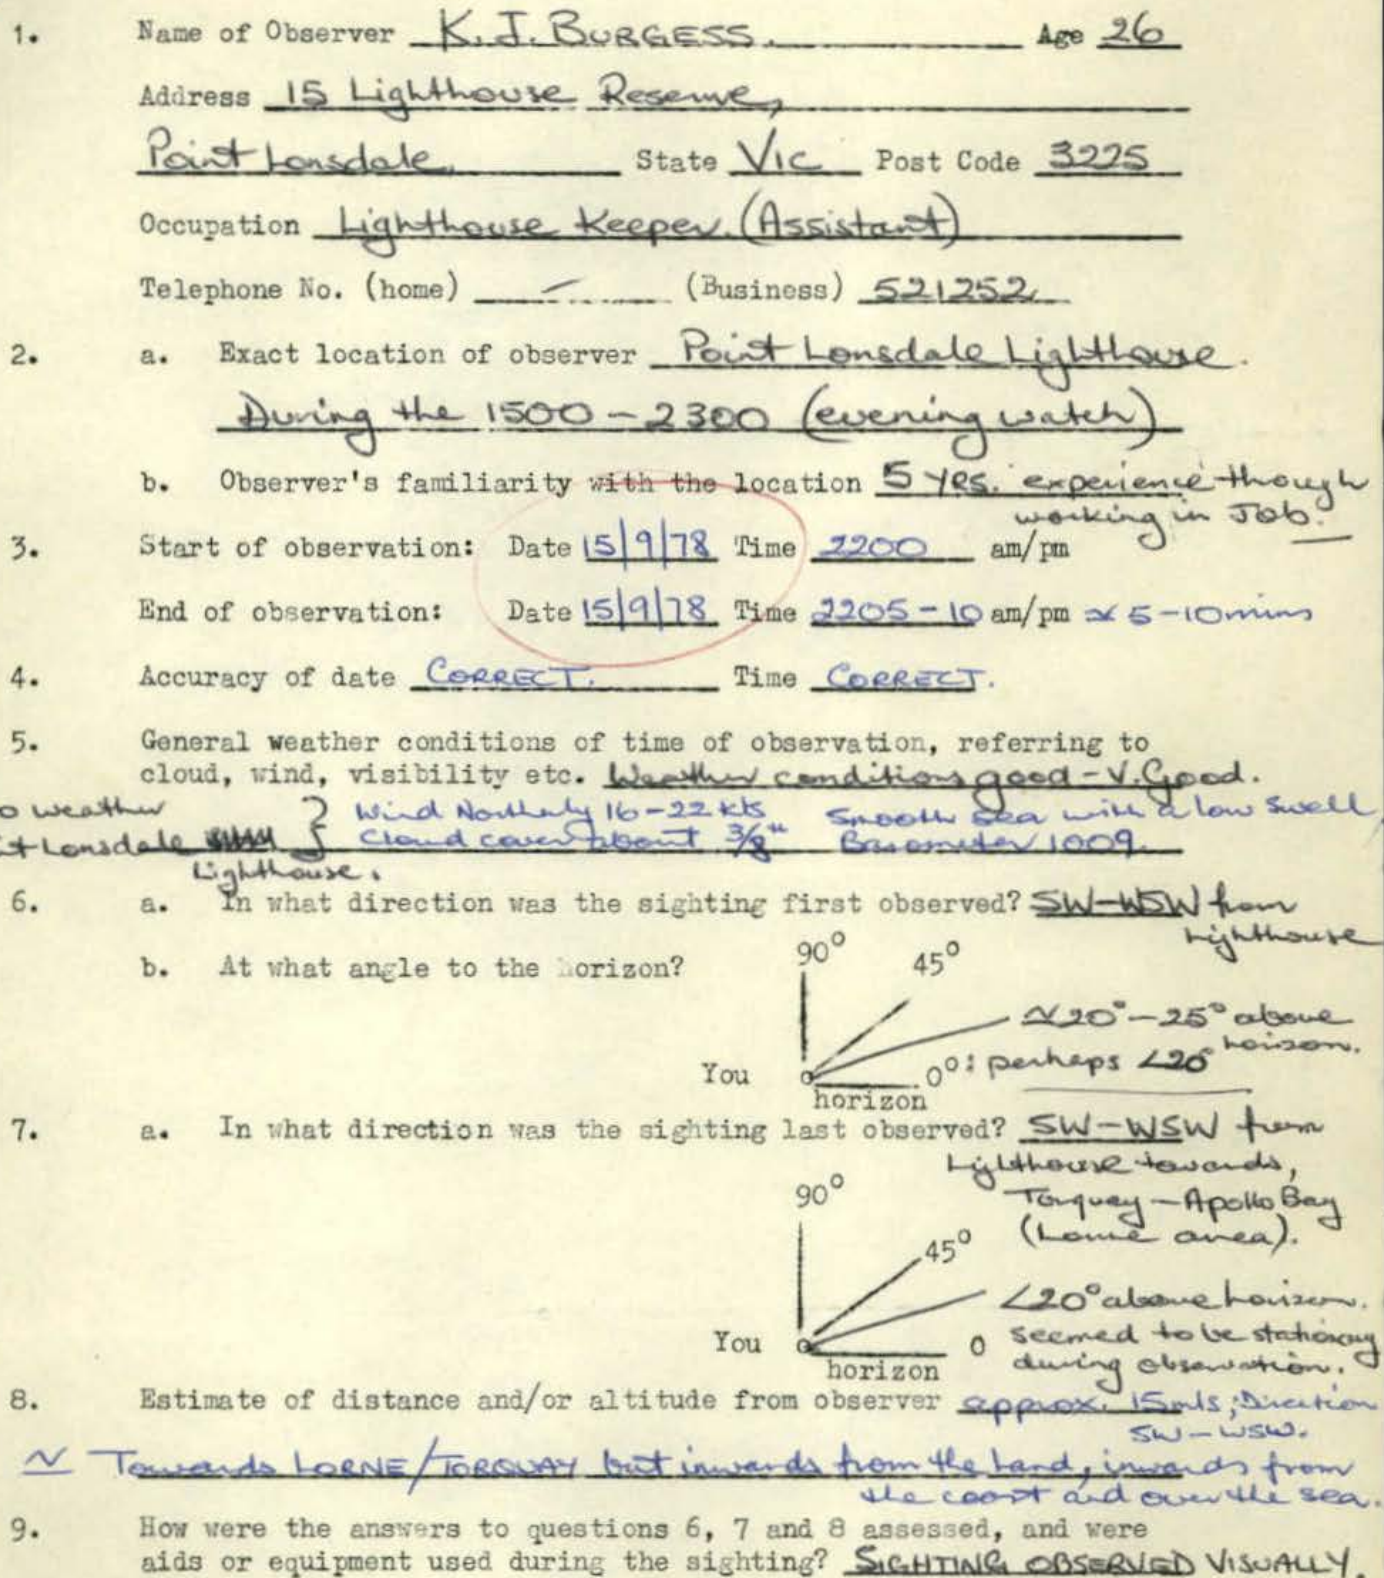 1. Name of Observer K.J. BURGESS. Age 26
Address 15 Lighthouse Reserve,
Point Lonsdale State VIC Post Code 3225
Occupation Lighthouse Keeper. (Assistant)
Telephone No. (home) — (Business) 521252
2. a. Exact location of observer Point Lonsdale Lighthouse.
During the 1500 - 2300 (evening watch)
b. Observer's familiarity with the location 5 yrs. experience though
working in Job.
3. Start of observation: Date 15/9/78 Time 2200 am/pm
End of observation: Date 15/9/78 Time 2205 - 10 am/pm ≃ 5-10 mins
4. Accuracy of date CORRECT. Time CORRECT.
5. General weather conditions of time of observation, referring to
cloud, wind, visibility etc. Weather conditions good - V. Good.
o weather } Wind Northerly 16-22 kts Smooth sea with a low swell,
t Lonsdale } Cloud cover about 3/8th Barometer 1009.
Lighthouse.
6. a. In what direction was the sighting first observed? SW-WSW from
Lighthouse
b. At what angle to the horizon?
90° 45°
≃20°-25° above
horizon.
You 0°: perhaps <20°
horizon
7. a. In what direction was the sighting last observed? SW-WSW from
Lighthouse towards,
90° Torquay - Apollo Bay
(Lorne area).
45°
<20° above horizon.
You 0 seemed to be stationary
horizon during observation.
8. Estimate of distance and/or altitude from observer approx. 15mls; Direction
SW-WSW.
~ Towards LORNE/TORQUAY but inwards from the land, inwards from
the coast and over the sea.
9. How were the answers to questions 6, 7 and 8 assessed, and were
aids or equipment used during the sighting? SIGHTING OBSERVED VISUALLY.